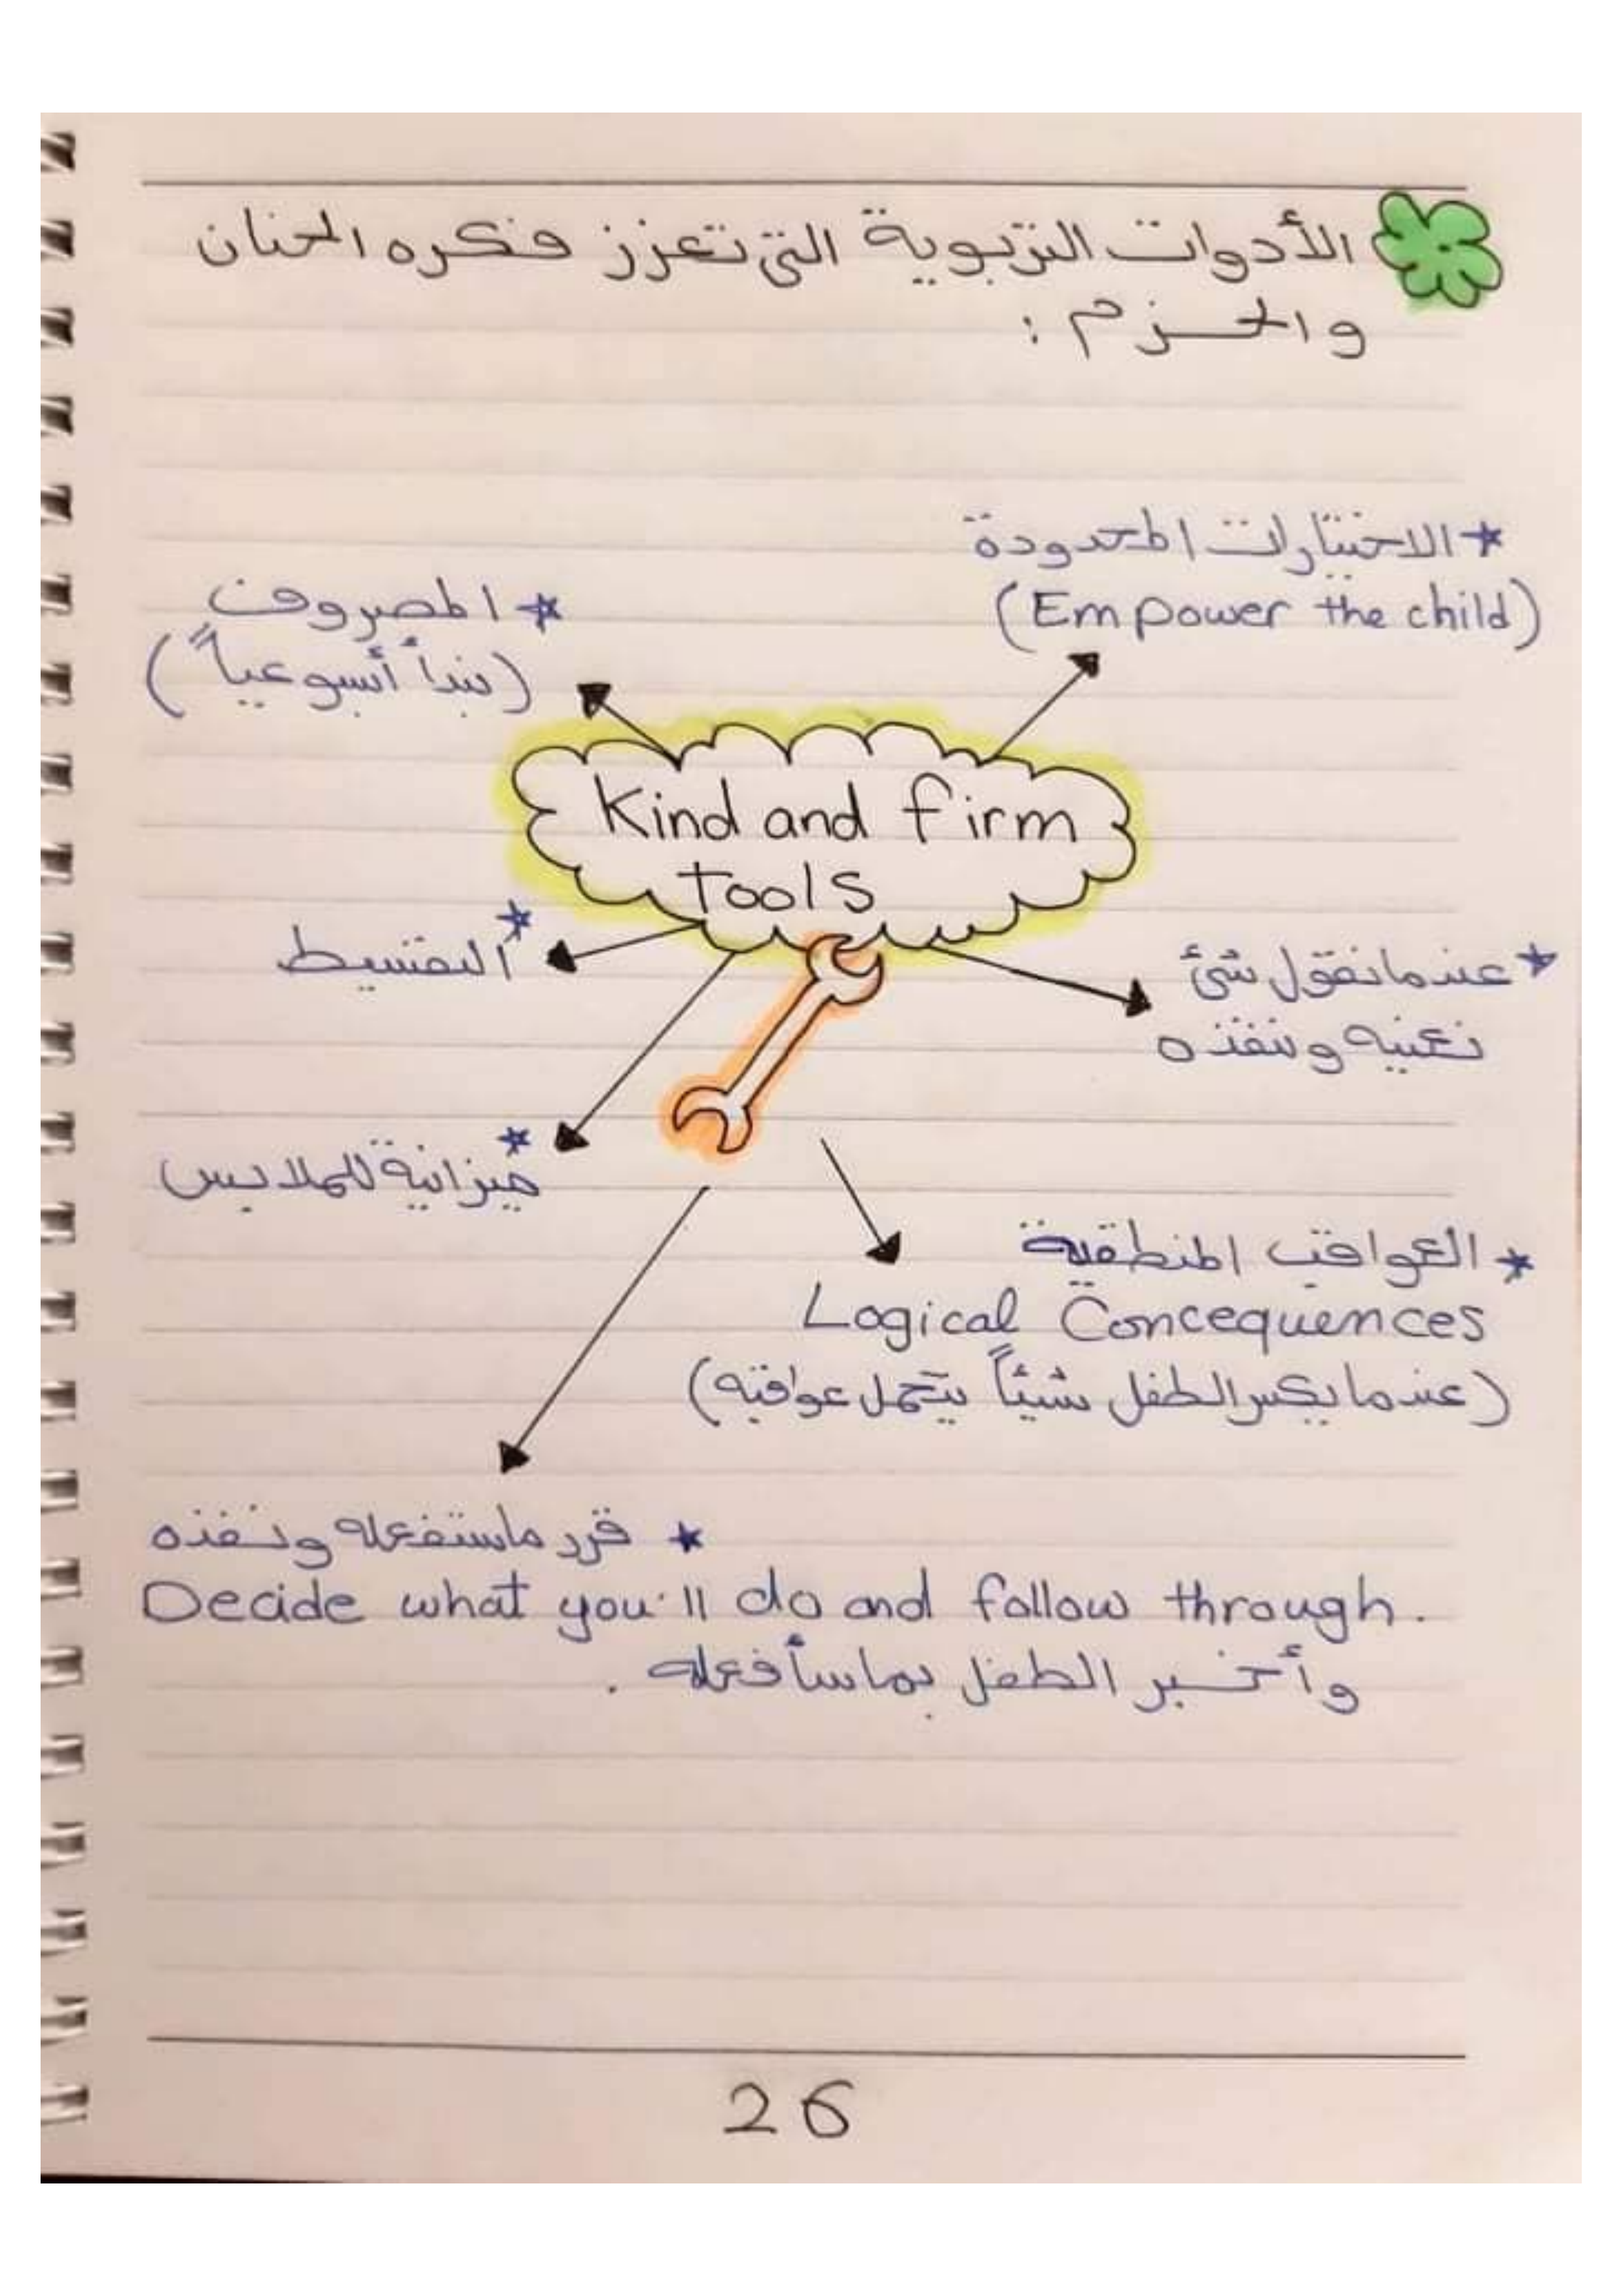 الأدوات التربوية التى تعزز فكره الحنان
والحزم :
* الاختيارات المحدودة
(Empower the child)
* المصروف
(نبدأ أسبوعياً)
Kind and firm
tools
* التقسيط
* عندما نقول شئ
نعنيه وننفذه
* ميزانية للملابس
* العواقب المنطقية
Logical Concequences
(عندما يكسر الطفل شيئاً يتحمل عواقبه)
* قرر ماستفعله ونفذه
Decide what you'll do and follow through.
وأخبر الطفل بما سأفعله .
26